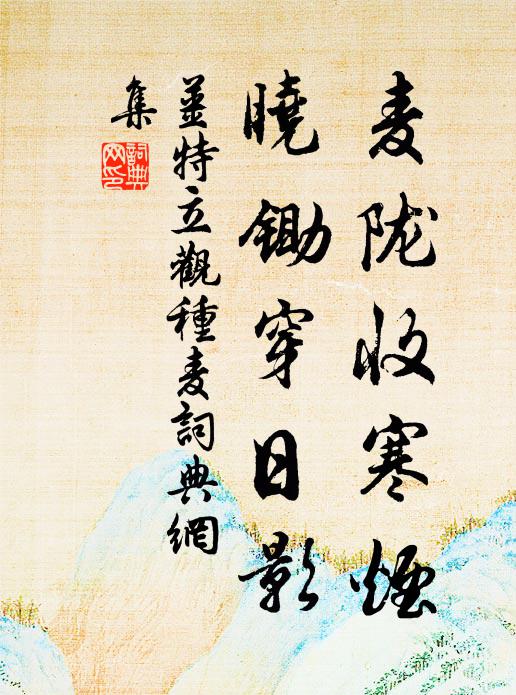 麦陇收寒煙
曉锄穿日影
姜特立觀種麦詞典網
集
詞典
网印